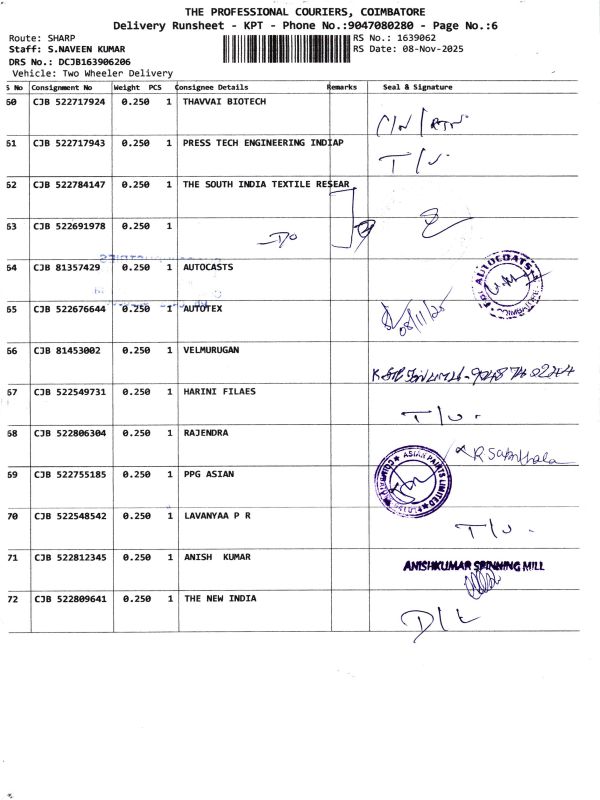 THE PROFESSIONAL COURIERS, COIMBATORE
Delivery Runsheet - KPT - Phone No.:9047080280 - Page No.:6
Route: SHARP
RS No.: 1639062
Staff: S.NAVEEN KUMAR
RS Date: 08-Nov-2025
DRS No.: DCJB163906206
Vehicle: Two Wheeler Delivery
S No Consignment No Weight PCS Consignee Details Remarks Seal & Signature
60 CJB 522717924 0.250 1 THAVVAI BIOTECH
61 CJB 522717943 0.250 1 PRESS TECH ENGINEERING INDIAP T/
62 CJB 522784147 0.250 1 THE SOUTH INDIA TEXTILE RESEAR
63 CJB 522691978 0.250 1
64 CJB 81357429 0.250 1 AUTOCASTS
AUTOCOATS COIMBATORE
65 CJB 522676644 0.250 1 AUTOTEX 08/11/25
66 CJB 81453002 0.250 1 VELMURUGAN
67 CJB 522549731 0.250 1 HARINI FILAES T/U.
68 CJB 522806304 0.250 1 RAJENDRA
69 CJB 522755185 0.250 1 PPG ASIAN
ASIAN PAINTS LIMITED
70 CJB 522548542 0.250 1 LAVANYAA P R T/U.
71 CJB 522812345 0.250 1 ANISH KUMAR ANISHKUMAR SPINNING MILL
72 CJB 522809641 0.250 1 THE NEW INDIA D/L